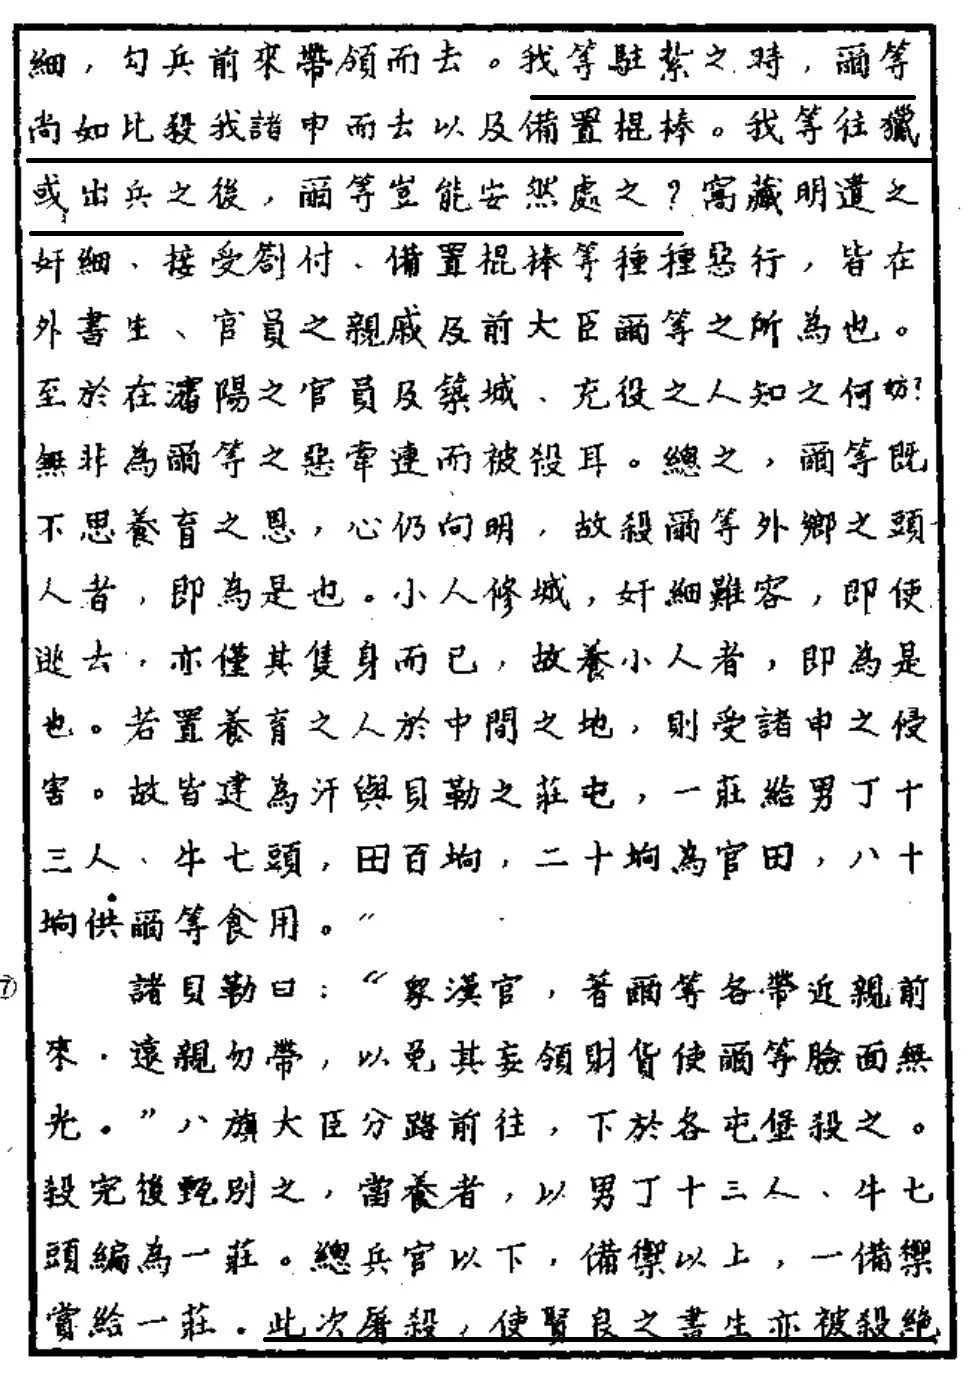 細，勾兵前來帶領而去。我等駐紮之時，爾等
尚如比殺我諸申而去以及備置棍棒。我等往獵
或出兵之後，爾等豈能安然處之？窩藏明遣之
奸細、接受劄付、備置棍棒等種種惡行，皆在
外書生、官員之親戚及前大臣爾等之所為也。
至於在瀋陽之官員及築城、充役之人知之何妨？
無非為爾等之惡牽連而被殺耳。總之，爾等既
不思養育之恩，心仍向明，故殺爾等外鄉之頭
人者，即為是也。小人修城，奸細難容，即使
逃去，亦僅其隻身而已，故養小人者，即為是
也。若置養育之人於中間之地，則受諸申之侵
害。故皆建為汗與貝勒之莊屯，一莊給男丁十
三人、牛七頭，田百坰，二十坰為官田，八十
坰供爾等食用。”
⑦
諸貝勒曰：“眾漢官，著爾等各帶近親前
來．遠親勿帶，以免其妄領財貨使爾等臉面無
光。”八旗大臣分路前往，下於各屯堡殺之。
殺完後甄別之，當養者，以男丁十三人、牛七
頭編為一莊。總兵官以下，備禦以上，一備禦
賞給一莊．此次屠殺，使賢良之書生亦被殺絕